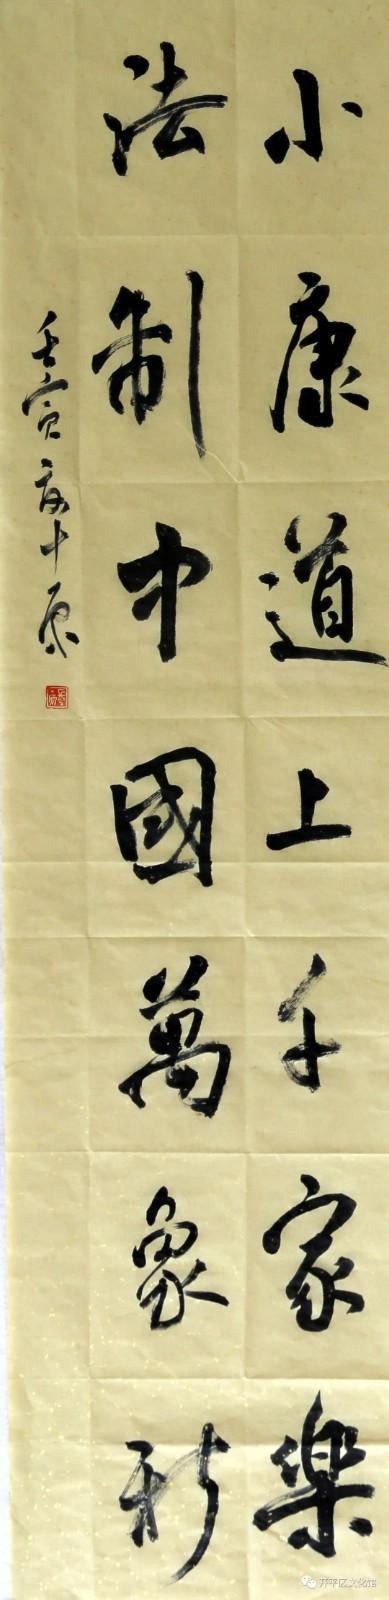 小康道上千家樂
法制中國萬象新
壬寅
开平区文化馆